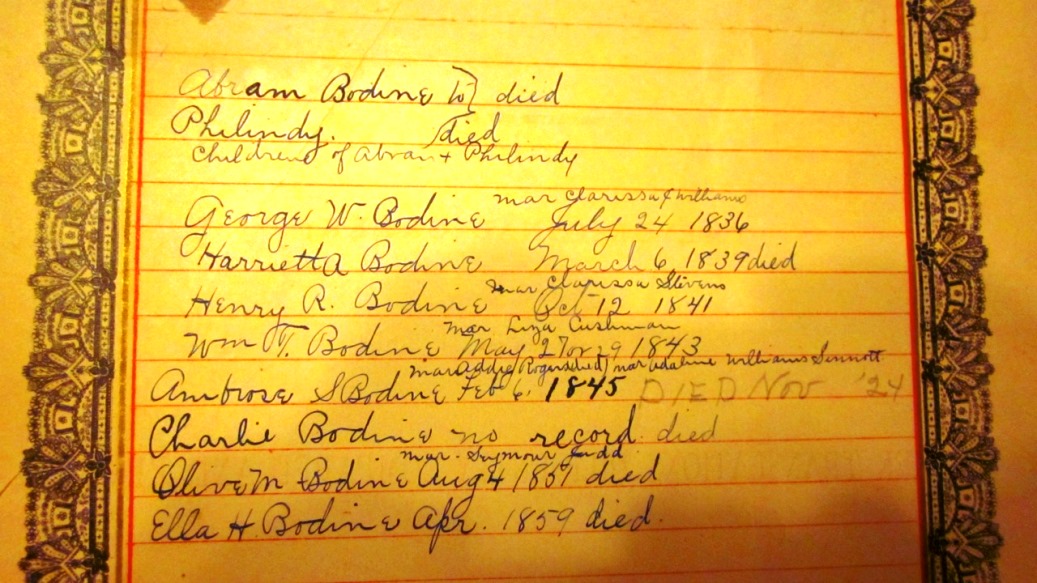 Abram Bodine to} died
Philindy. died
Children of Abram + Philindy
mar Clarissa J Williams
George W. Bodine July 24 1836
Harrietta Bodine March 6 1839 died
mar Clarissa Stivens
Henry R. Bodine Oct 12 1841
mar Liza Cushman
Wm T. Bodine May 27 or 29 1843
mar Addie Rogers (died) mar Adaline Williams Sinnott
Ambrose S Bodine Feb 6. 1845 DIED Nov '24
Charlie Bodine no record died
mar. Seymour Judd
Olive M Bodine Aug 4 died
Ella H. Bodine Apr. 1859 died.